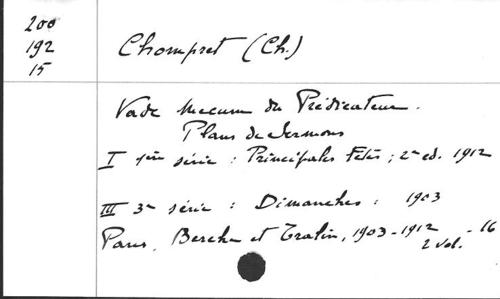 200
192
15
Chompret (Ch.)
Vade Mecum du Prédicateur.
Plans de sermons
I 1ère série : Principales Fêtes ; 2e ed. 1912
III 3e série : Dimanches : 1903
Paris, Berche et Tralin, 1903-1912
2 vol. -16